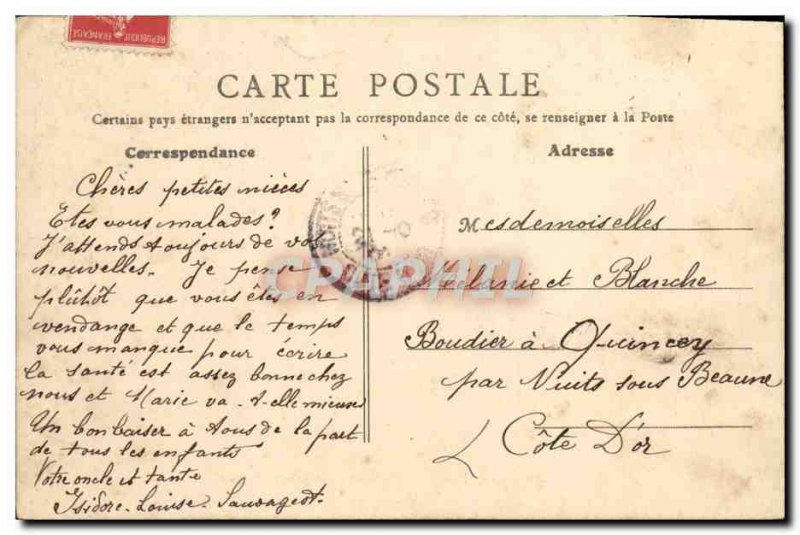 REPUBLIQUE FRANÇAISE
CARTE POSTALE
Certains pays étrangers n'acceptant pas la correspondance de ce côté, se renseigner à la Poste
Correspondance
Chères petites nièces
Etes vous malades?
J'attends toujours de vos
nouvelles. Je pense
plûtôt que vous êtes en
vendange et que le temps
vous manque pour écrire
la santé est assez bonne chez
nous et Marie va-t-elle mieux
Un bon baiser à tous de la part
de tous les enfants
Votre oncle et tante
Isidore-Louise-Sauvageot.
Adresse
Mesdemoiselles
Mélanie et Blanche
Boudier à Quincey
par Nuits sous Beaune
Côte D'or
CPAPHIL